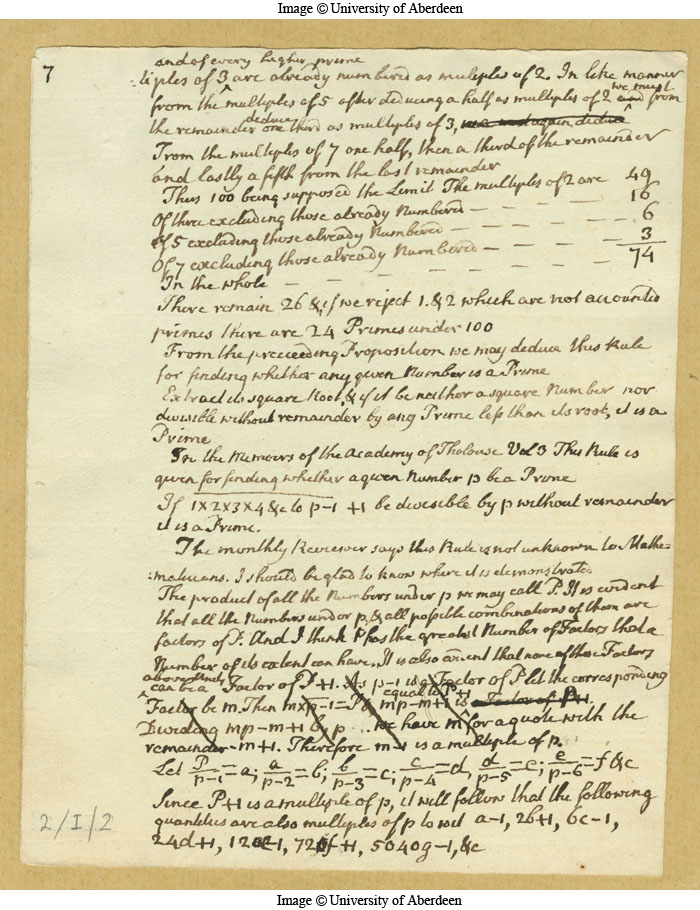 Image © University of Aberdeen
7
and of every higher prime
tiples of 3 are already numbered as muliples of 2. In like manner
from the multiples of 5 after deducing a half as multiples of 2 we must and from
the remainder deduce one third as multiples of 3, again deduce
From the multiples of 7 one half, then a third of the remainder
and lastly a fifth from the last remainder
Thus 100 being supposed the Limit The multiples of 2 are 49
Of three excluding those already Numbered — — — 16
Of 5 excluding those already Numbered — — — — 6
Of 7 excluding those already Numbered — — — — 3
In the whole — — — — — — — 74
There remain 26 & if we reject 1. & 2 which are not accounted
primes there are 24 Primes under 100
From the preceeding Proposition we may deduce this Rule
for finding whether any given Number is a Prime
Extract its square Root, & if it be neither a square Number nor
divisible without remainder by any Prime less than its root, it is a
Prime
In the Memoirs of the Academy of Tholouse Vol 3 This Rule is
given for finding whether a given Number p be a Prime
If 1x2x3x4 &c to p-1 +1 be divisible by p without remainder
it is a Prime.
The monthly Reviewer says this Rule is not unknown to Mathe=
=maticians. I should be glad to know where it is demonstrated.
The product of all the Numbers under p we may call P. It is evident
that all the Numbers under p, & all possible combinations of them are
factors of P. And I think P has the greatest Number of Factors that a
Number of its extent can have. It is also evident that none of these Factors
above unity
can be a Factor of P+1. As p-1 is a Factor of P let the corresponding
Factor be m. Then mxp-1 = P & mp-m+1 is equal to P+1 a Factor of P+1.
Dividing mp-m+1 by p we have m for a quote with the
remainder -m+1. Therefore m-1 is a multiple of p.
Let P/p-1 = a; a/p-2 = b; b/p-3 = c; c/p-4 = d, d/p-5 = e; e/p-6 = f &c
Since P+1 is a multiple of p, it will follow that the following
quantities are also multiples of p to wit a-1, 2b+1, 6c-1,
24d+1, 120e-1, 720f+1, 5040g-1, &c
2/I/2
Image © University of Aberdeen